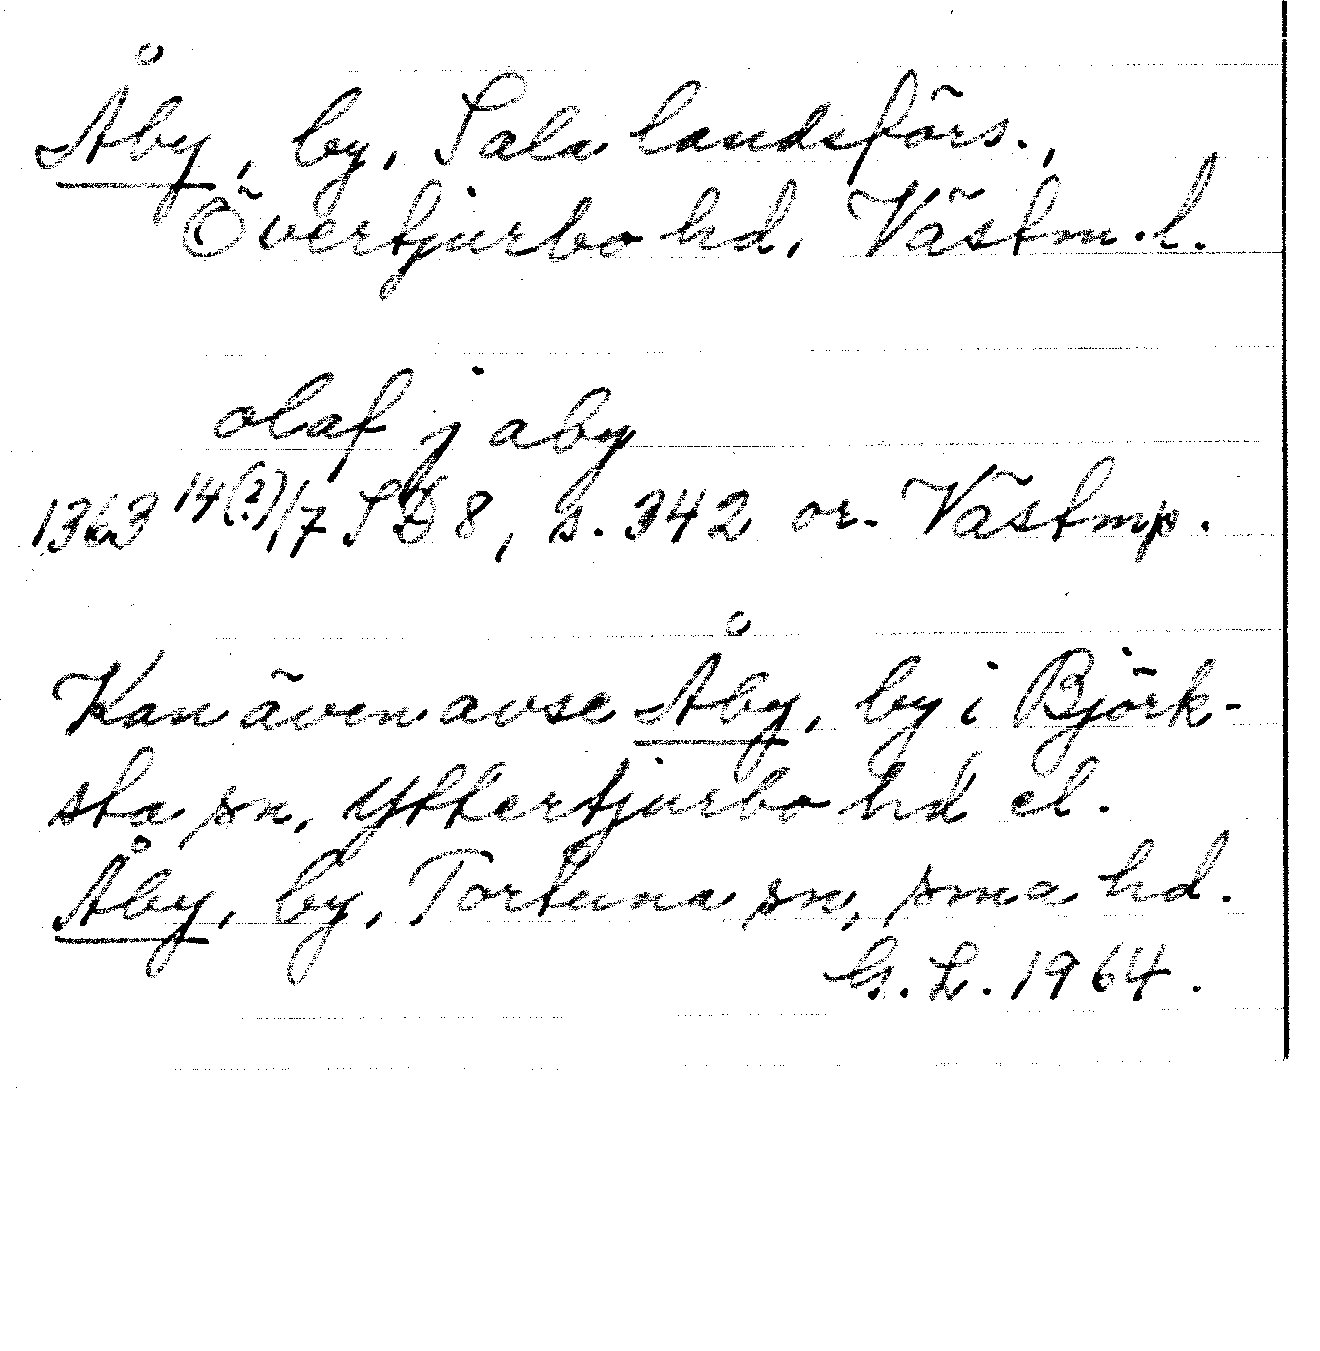 Åby, by, Sala landsförs.,
Övertjurbo hd, Västm.l.
olaf j aby
1363 14(?)/7 SD 8, s. 342 or. Västmp.
Kan även avse Åby, by i Björk-
sta sn, Yttertjurbo hd el.
Åby, by, Tortuna sn, sma hd.
G.L. 1964.